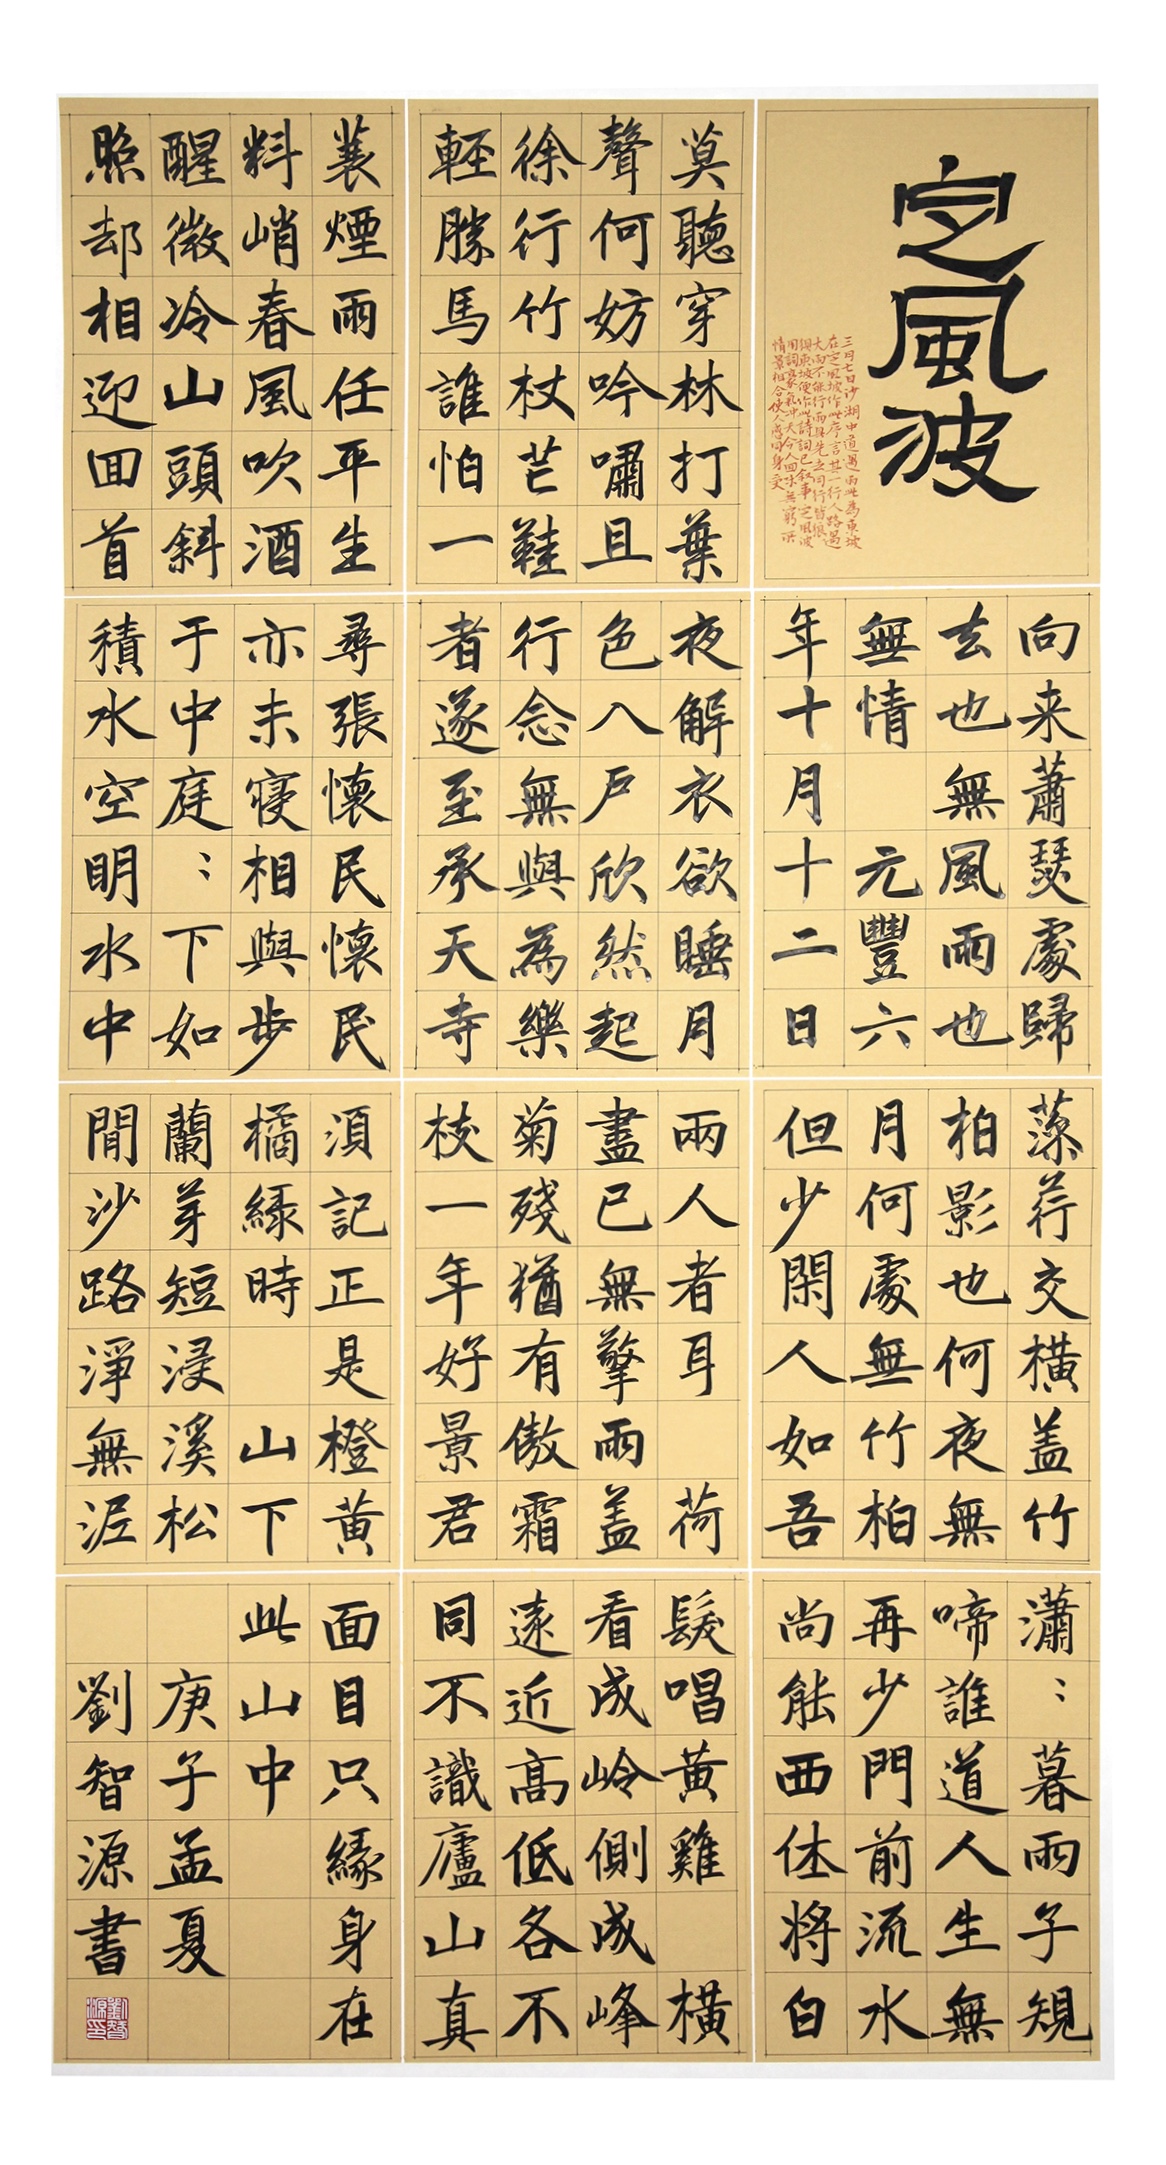 定風波
三月七日沙湖中道遇雨此為東坡
在定風坡作此序言其一行人路遇
大雨不能行雨具先之同行皆狼
狽東坡便作此詩詞已叙事定風波
用詞豪氣冲天令人回味無窮
情景相合使人感同身受
莫聽穿林打葉
聲何妨吟嘯且
徐行竹杖芒鞋
輕勝馬誰怕一
蓑煙雨任平生
料峭春風吹酒
醒微冷山頭斜
照却相迎回首
向来蕭瑟處歸
去也無風雨也
無情 元豐六
年十月十二日
夜解衣欲睡月
色入戶欣然起
行念無與為樂
者遂至承天寺
尋張懷民懷民
亦未寢相與步
于中庭：下如
積水空明水中
藻荇交橫盖竹
柏影也何夜無
月何處無竹柏
但少閑人如吾
兩人者耳 荷
盡已無擎雨盖
菊殘猶有傲霜
枝一年好景君
須記正是橙黄
橘緑時 山下
蘭芽短浸溪松
間沙路淨無泥
瀟：暮雨子規
啼誰道人生無
再少門前流水
尚能西休將白
髮唱黄雞 橫
看成岭側成峰
遠近高低各不
同不識廬山真
面目只緣身在
此山中
庚子孟夏
劉智源書